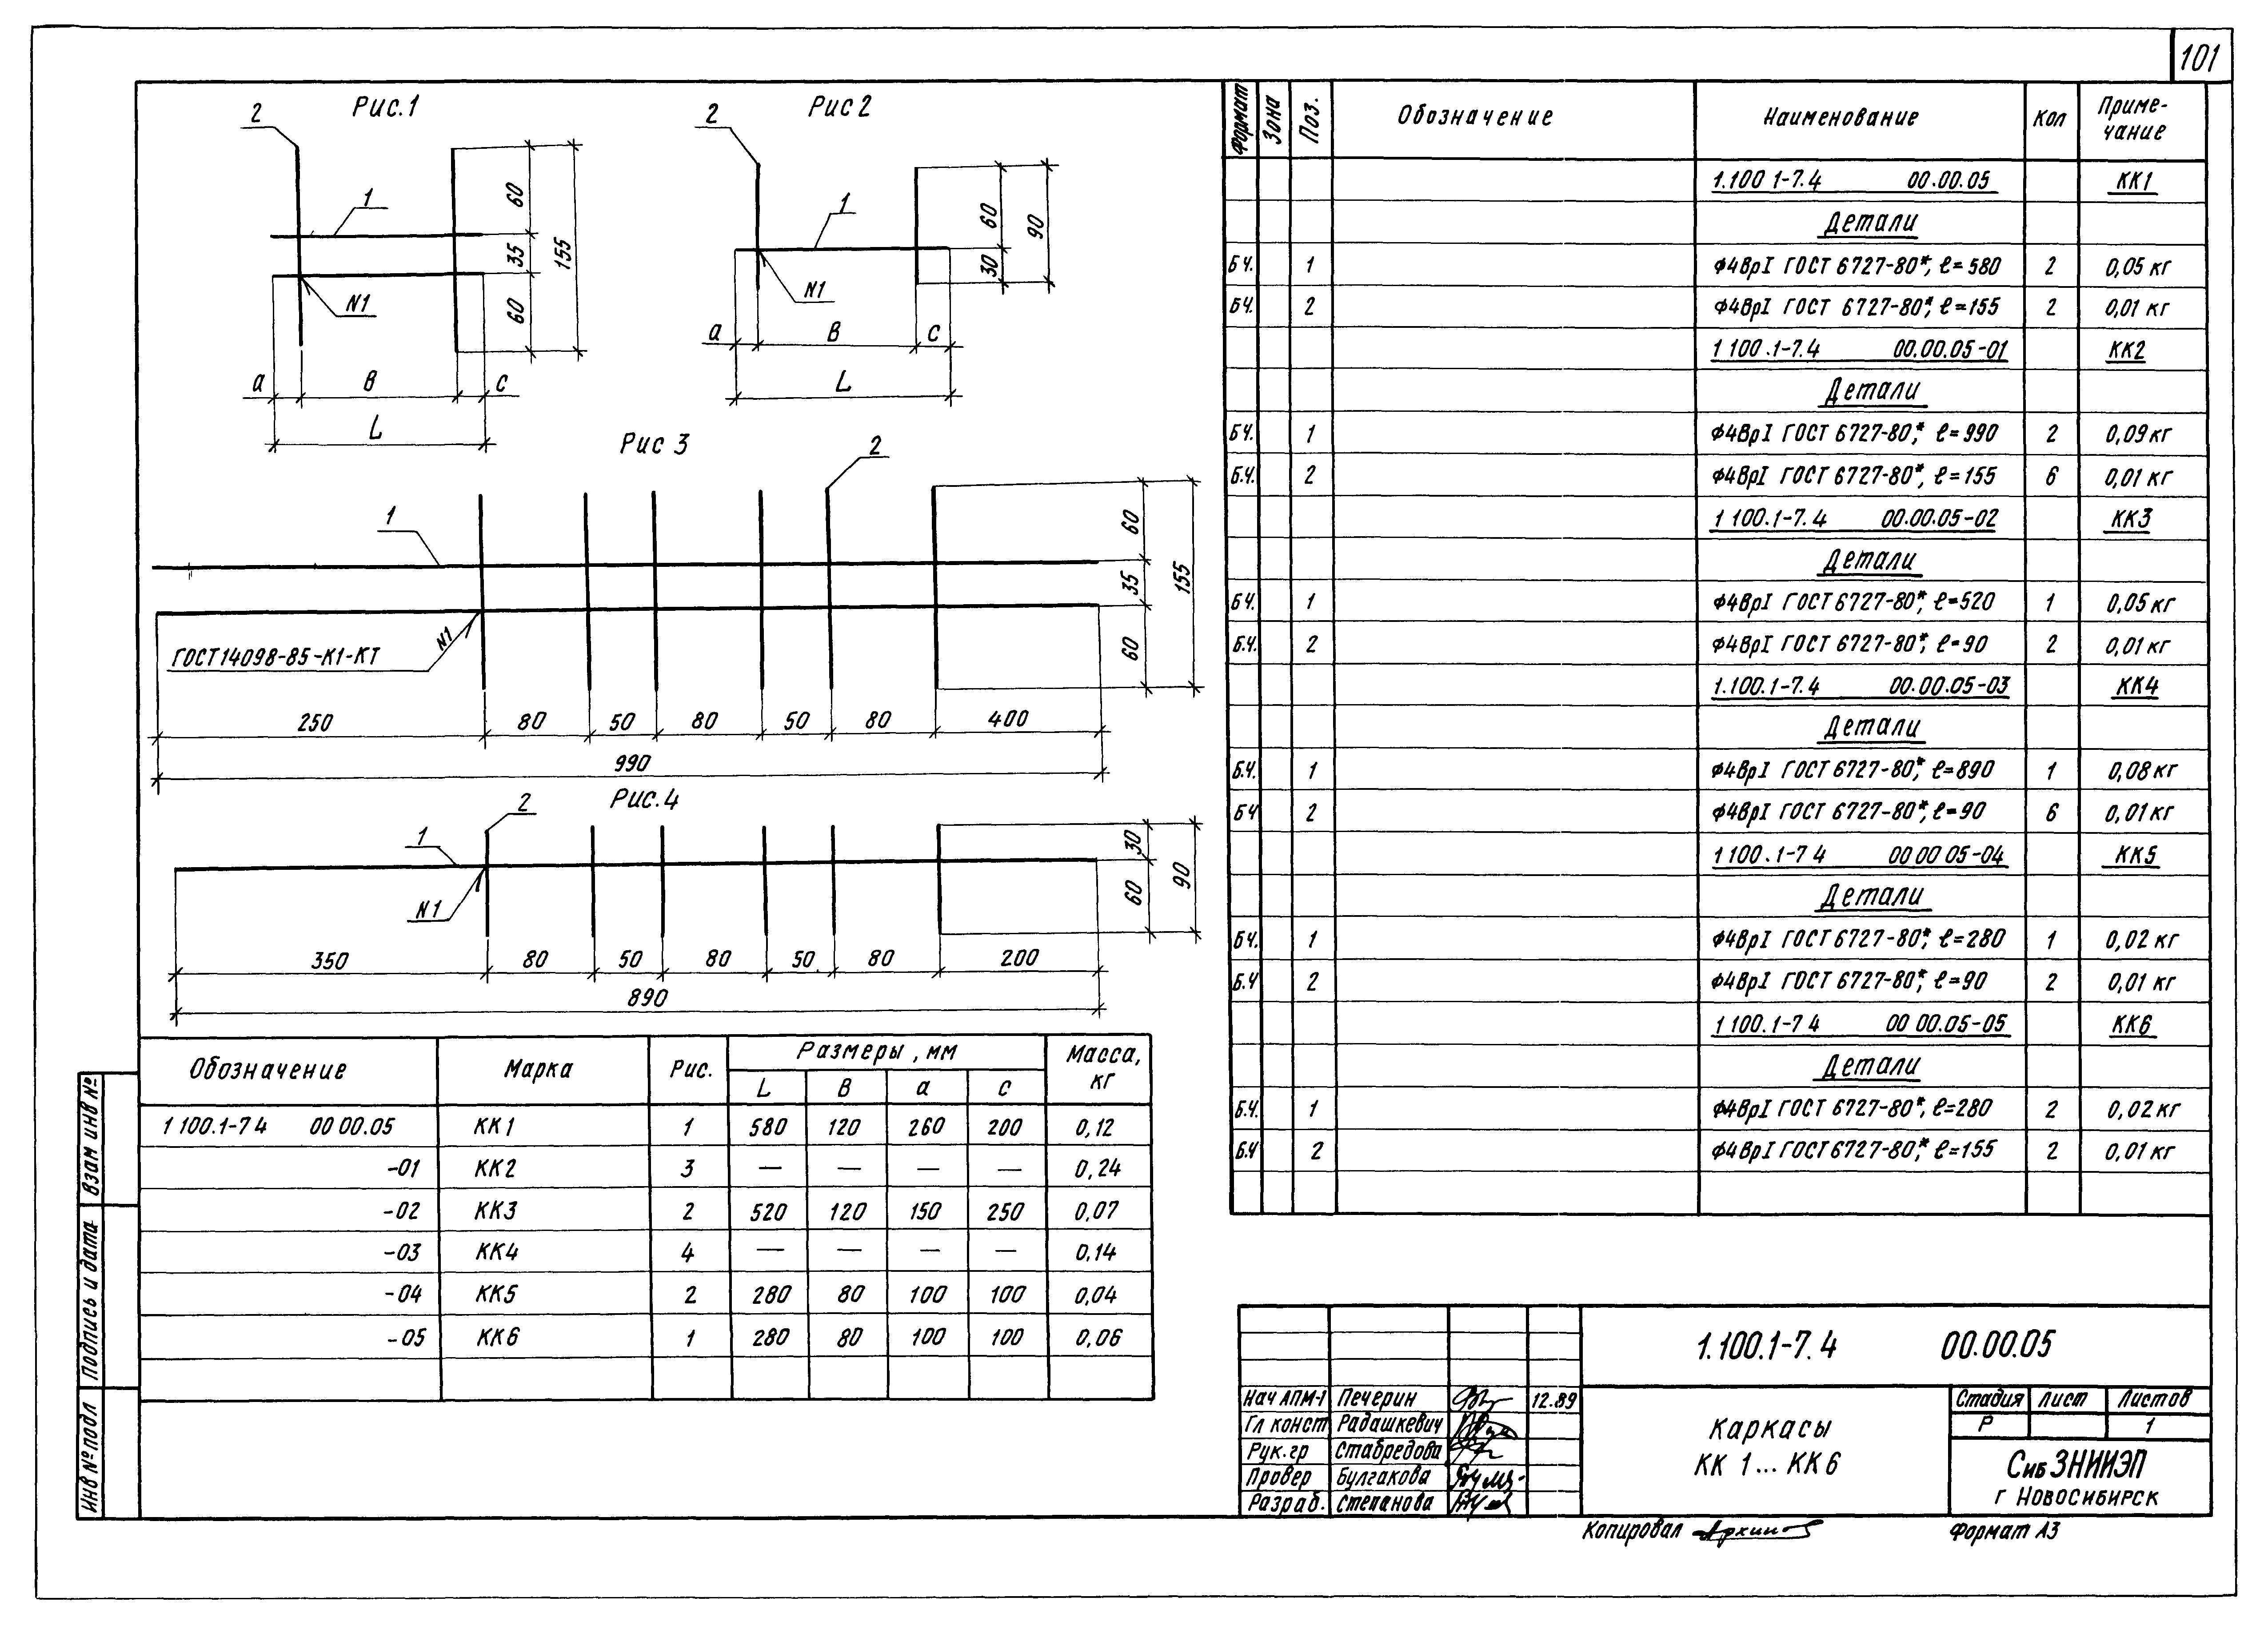 101
Рис.1
2
1
N1
60
35
60
155
а
В
с
L
Рис 2
2
1
N1
60
30
90
а
В
с
L
Рис 3
2
1
N1
ГОСТ14098-85-К1-КТ
60
35
60
155
250 80 50 80 50 80 400
990
Рис.4
2
1
N1
30
60
90
350 80 50 80 50 80 200
890
Обозначение Марка Рис. Размеры, мм Масса, кг
L В а с
1 100.1-7 4 00 00.05 КК1 1 580 120 260 200 0,12
-01 КК2 3 — — — — 0,24
-02 КК3 2 520 120 150 250 0,07
-03 КК4 4 — — — — 0,14
-04 КК5 2 280 80 100 100 0,04
-05 КК6 1 280 80 100 100 0,06
Формат Зона Поз. Обозначение Наименование Кол Приме-
чание
1.100 1-7.4 00.00.05 КК1
Детали
БЧ. 1 Ф4ВрI ГОСТ 6727-80*, ℓ=580 2 0,05 кг
БЧ. 2 Ф4ВрI ГОСТ 6727-80*, ℓ=155 2 0,01 кг
1 100.1-7.4 00.00.05-01 КК2
Детали
БЧ. 1 Ф4ВрI ГОСТ 6727-80,* ℓ=990 2 0,09 кг
Б.Ч. 2 Ф4ВрI ГОСТ 6727-80*, ℓ=155 6 0,01 кг
1 100.1-7.4 00.00.05-02 КК3
Детали
БЧ. 1 Ф4ВрI ГОСТ 6727-80*, ℓ=520 1 0,05 кг
Б.Ч. 2 Ф4ВрI ГОСТ 6727-80*, ℓ=90 2 0,01 кг
1.100.1-7.4 00.00.05-03 КК4
Детали
Б.Ч. 1 Ф4ВрI ГОСТ 6727-80,* ℓ=890 1 0,08 кг
БЧ 2 Ф4ВрI ГОСТ 6727-80*, ℓ=90 6 0,01 кг
1 100.1-7 4 00 00 05-04 КК5
Детали
БЧ. 1 Ф4ВрI ГОСТ 6727-80*, ℓ=280 1 0,02 кг
Б.Ч 2 Ф4ВрI ГОСТ 6727-80*, ℓ=90 2 0,01 кг
1 100.1-7 4 00 00.05-05 КК6
Детали
Б.Ч. 1 Ф4ВрI ГОСТ 6727-80*, ℓ=280 2 0,02 кг
Б.Ч 2 Ф4ВрI ГОСТ 6727-80,* ℓ=155 2 0,01 кг
Взам инв №
Подпись и дата
Инв № подл
Нач АПМ-1 Печерин 12.89
Гл конст Радашкевич
Рук.гр Стабредова
Провер Булгакова
Разраб. Степанова
1.100.1-7.4 00.00.05
Каркасы
КК 1... КК 6
Стадия Лист Листов
Р 1
СибЗНИИЭП
г Новосибирск
Копировал
Формат А3